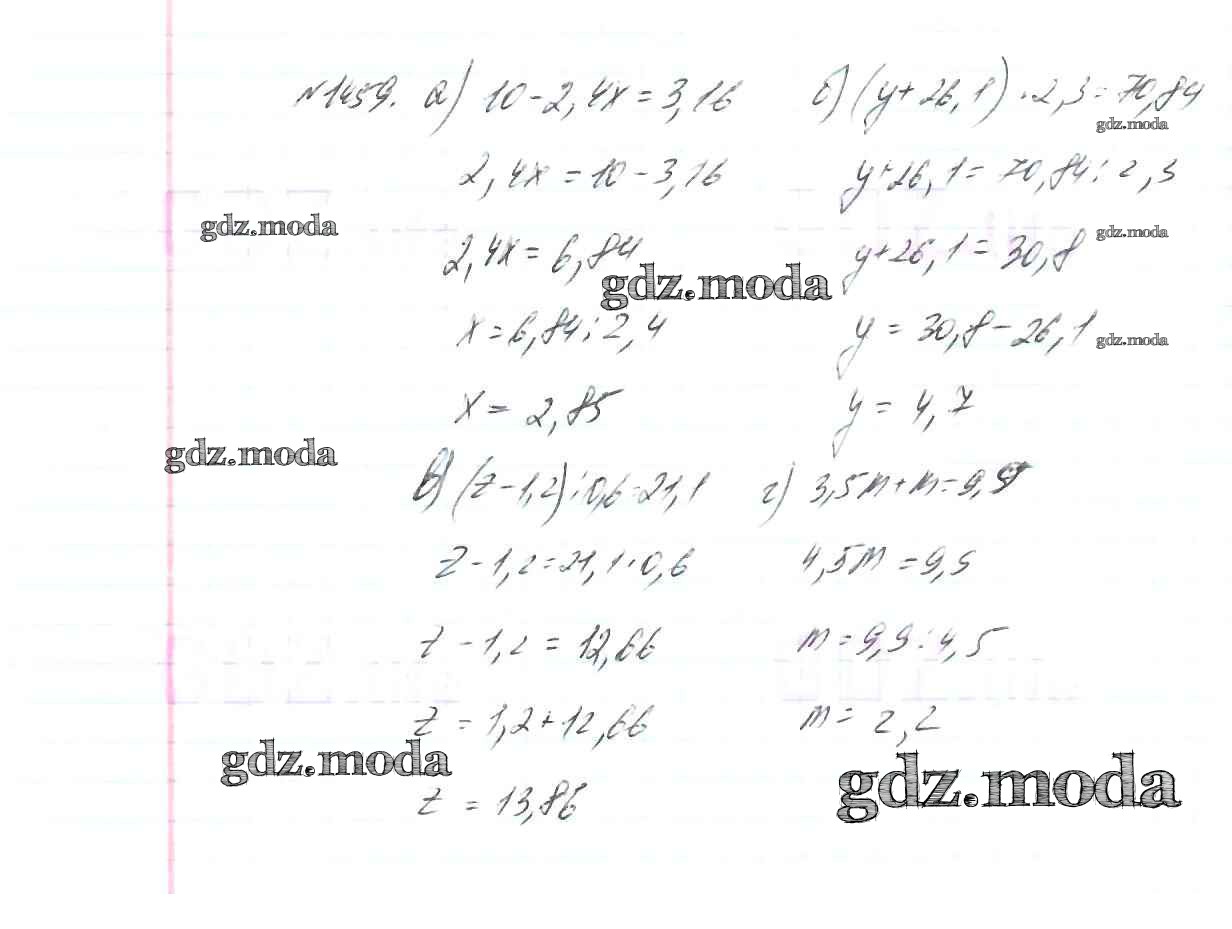 №1459. а) 10-2,4x=3,16
2,4x=10-3,16
2,4x=6,84
x=6,84:2,4
x=2,85
б) (y+26,1)·2,3=70,84
y+26,1=70,84:2,3
y+26,1=30,8
y=30,8-26,1
y=4,7
в) (z-1,2):0,6=21,1
z-1,2=21,1·0,6
z-1,2=12,66
z=1,2+12,66
z=13,86
г) 3,5m+m=9,9
4,5m=9,9
m=9,9:4,5
m=2,2
gdz.moda
gdz.moda
gdz.moda
gdz.moda
gdz.moda
gdz.moda
gdz.moda
gdz.moda